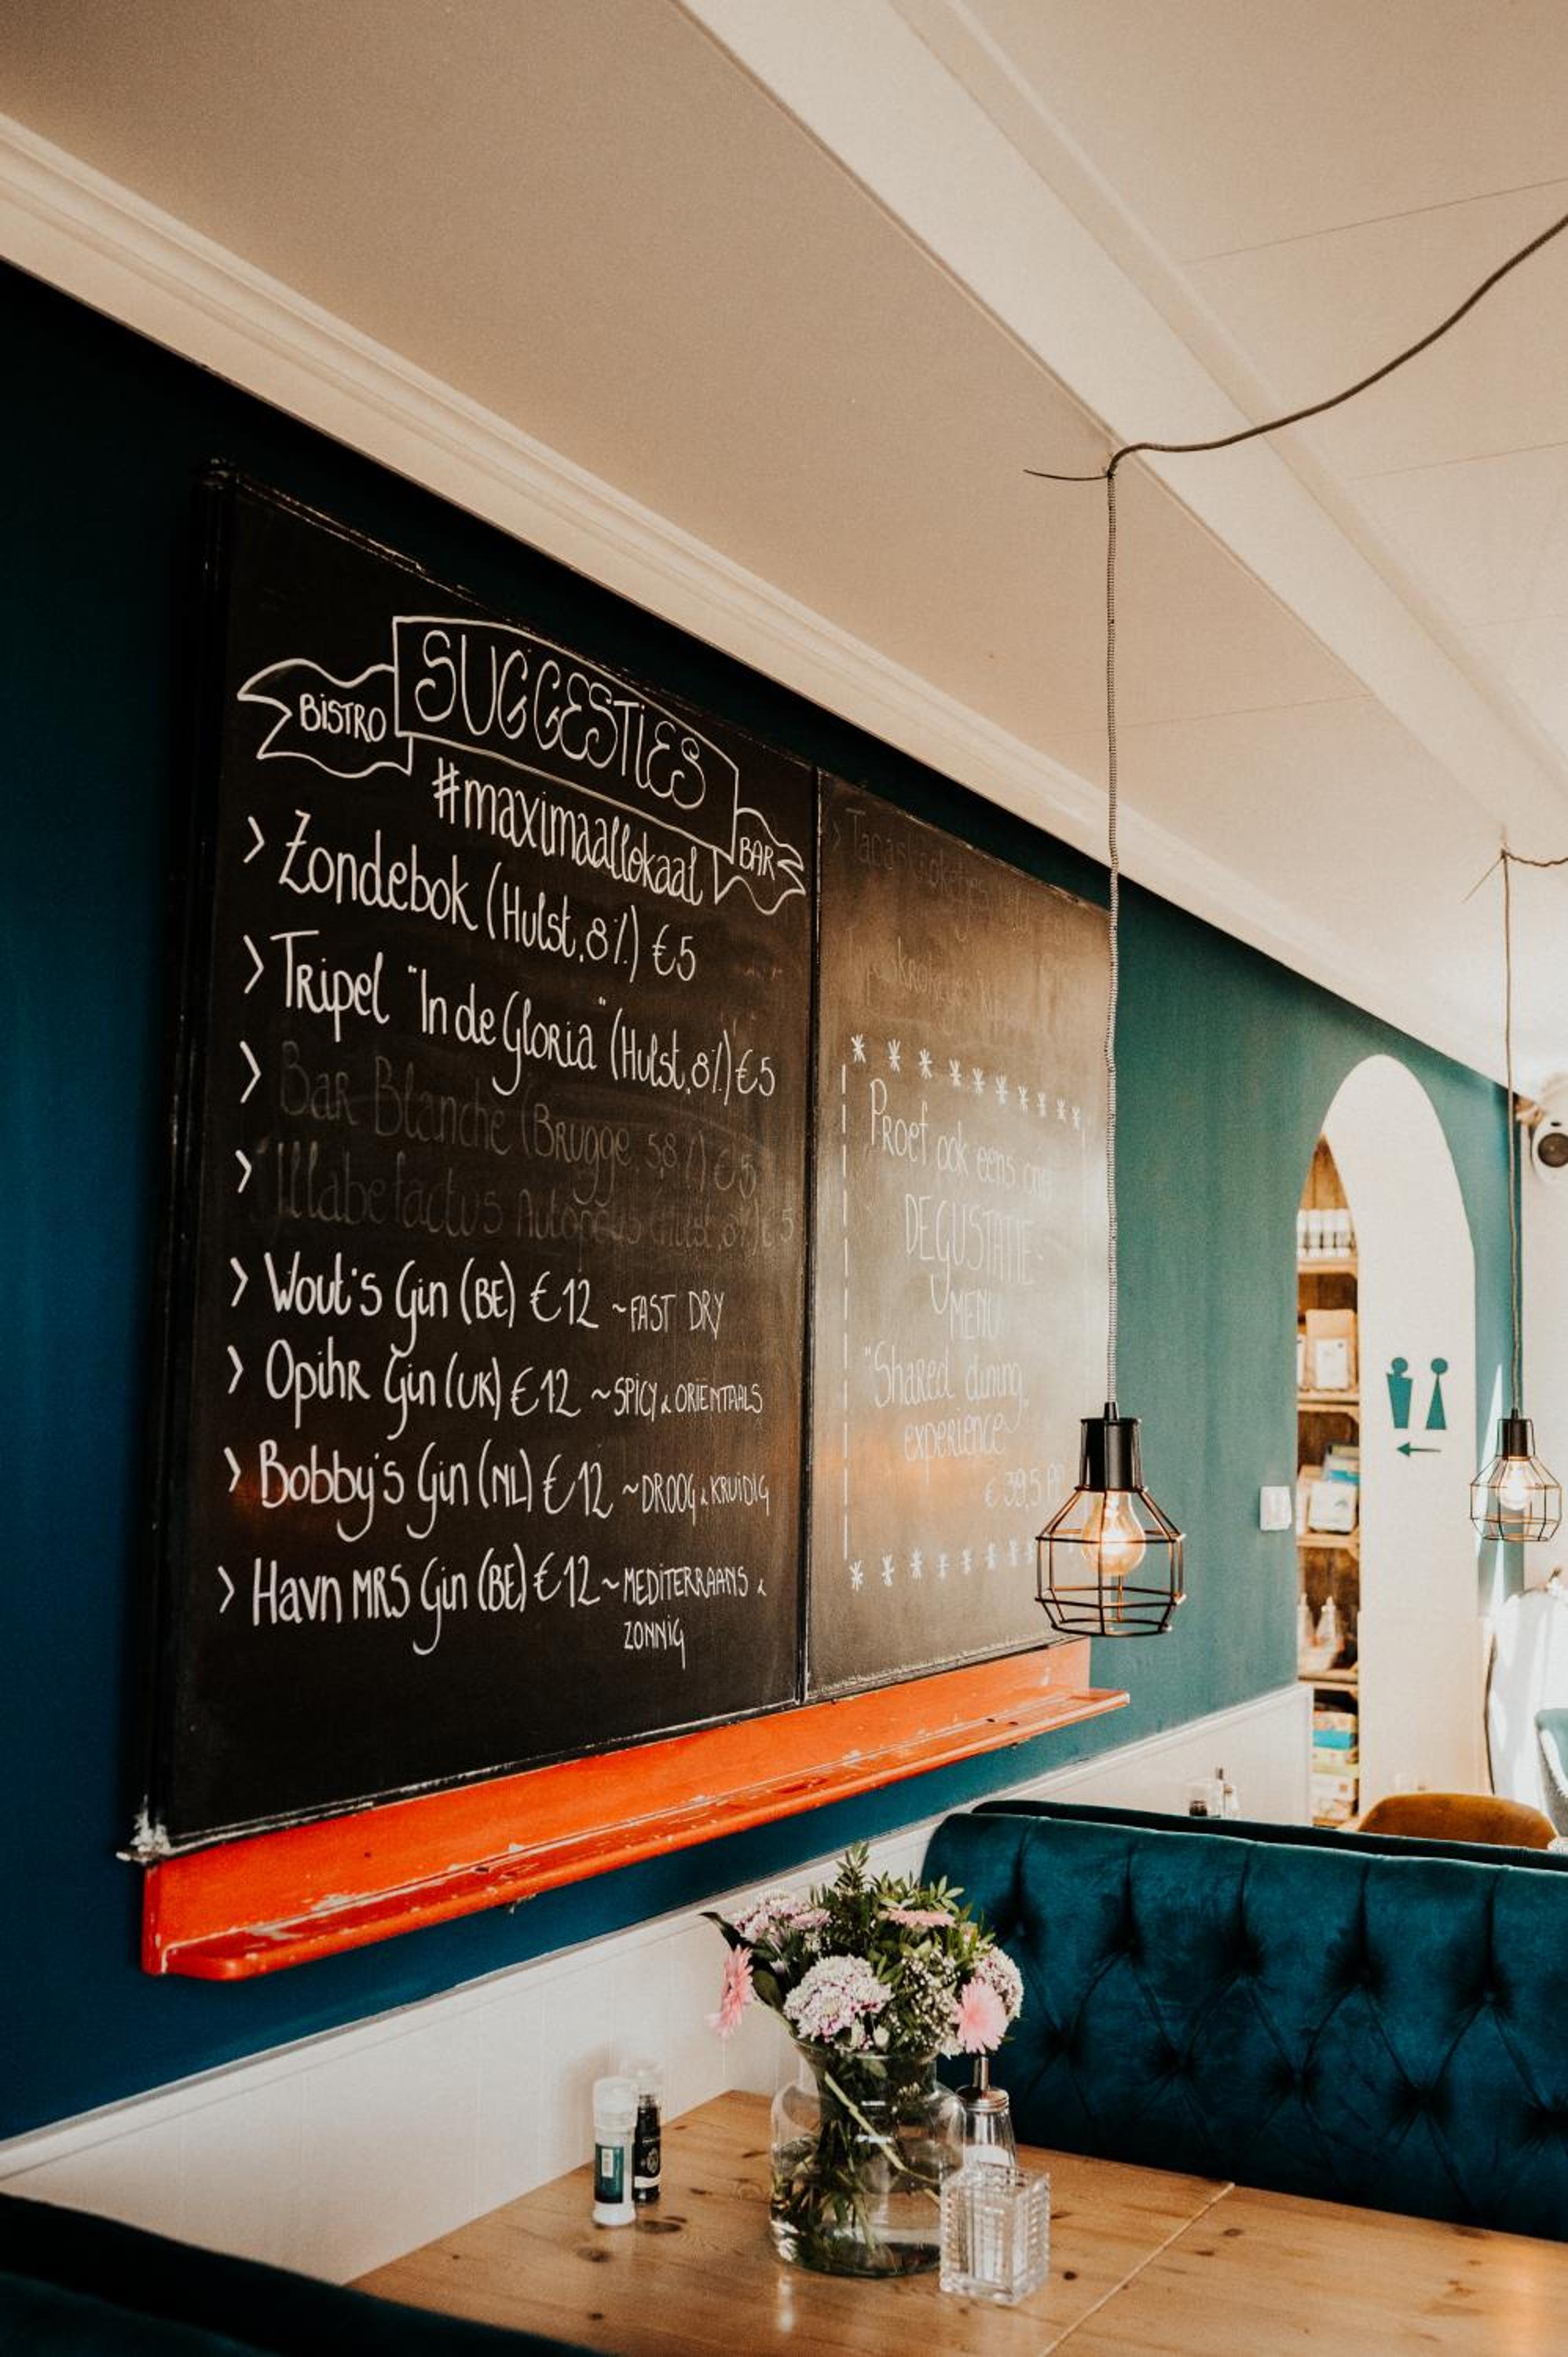 SUGGESTIES
BISTRO
BAR
#maximaallokaal
> Zondebok (Hulst, 8%) €5
> Tripel "In de Gloria" (Hulst, 8%) €5
> Bar Blanche (Brugge, 5,8%) €5
> Malbefactus (Hulst, 8%) €5
> Wout's Gin (BE) €12 ~ FAST DRY
> Opihr Gin (UK) €12 ~ SPICY & ORIËNTAALS
> Bobby's Gin (NL) €12 ~ DROOG & KRUIDIG
> Havn MRS Gin (BE) €12 ~ MEDITERRAANS &
ZONNIG
* * * * * * * * * *
Proef ook eens ons
DEGUSTATIE-
MENU
"Shared dining
experience"
€ 39,5 PP